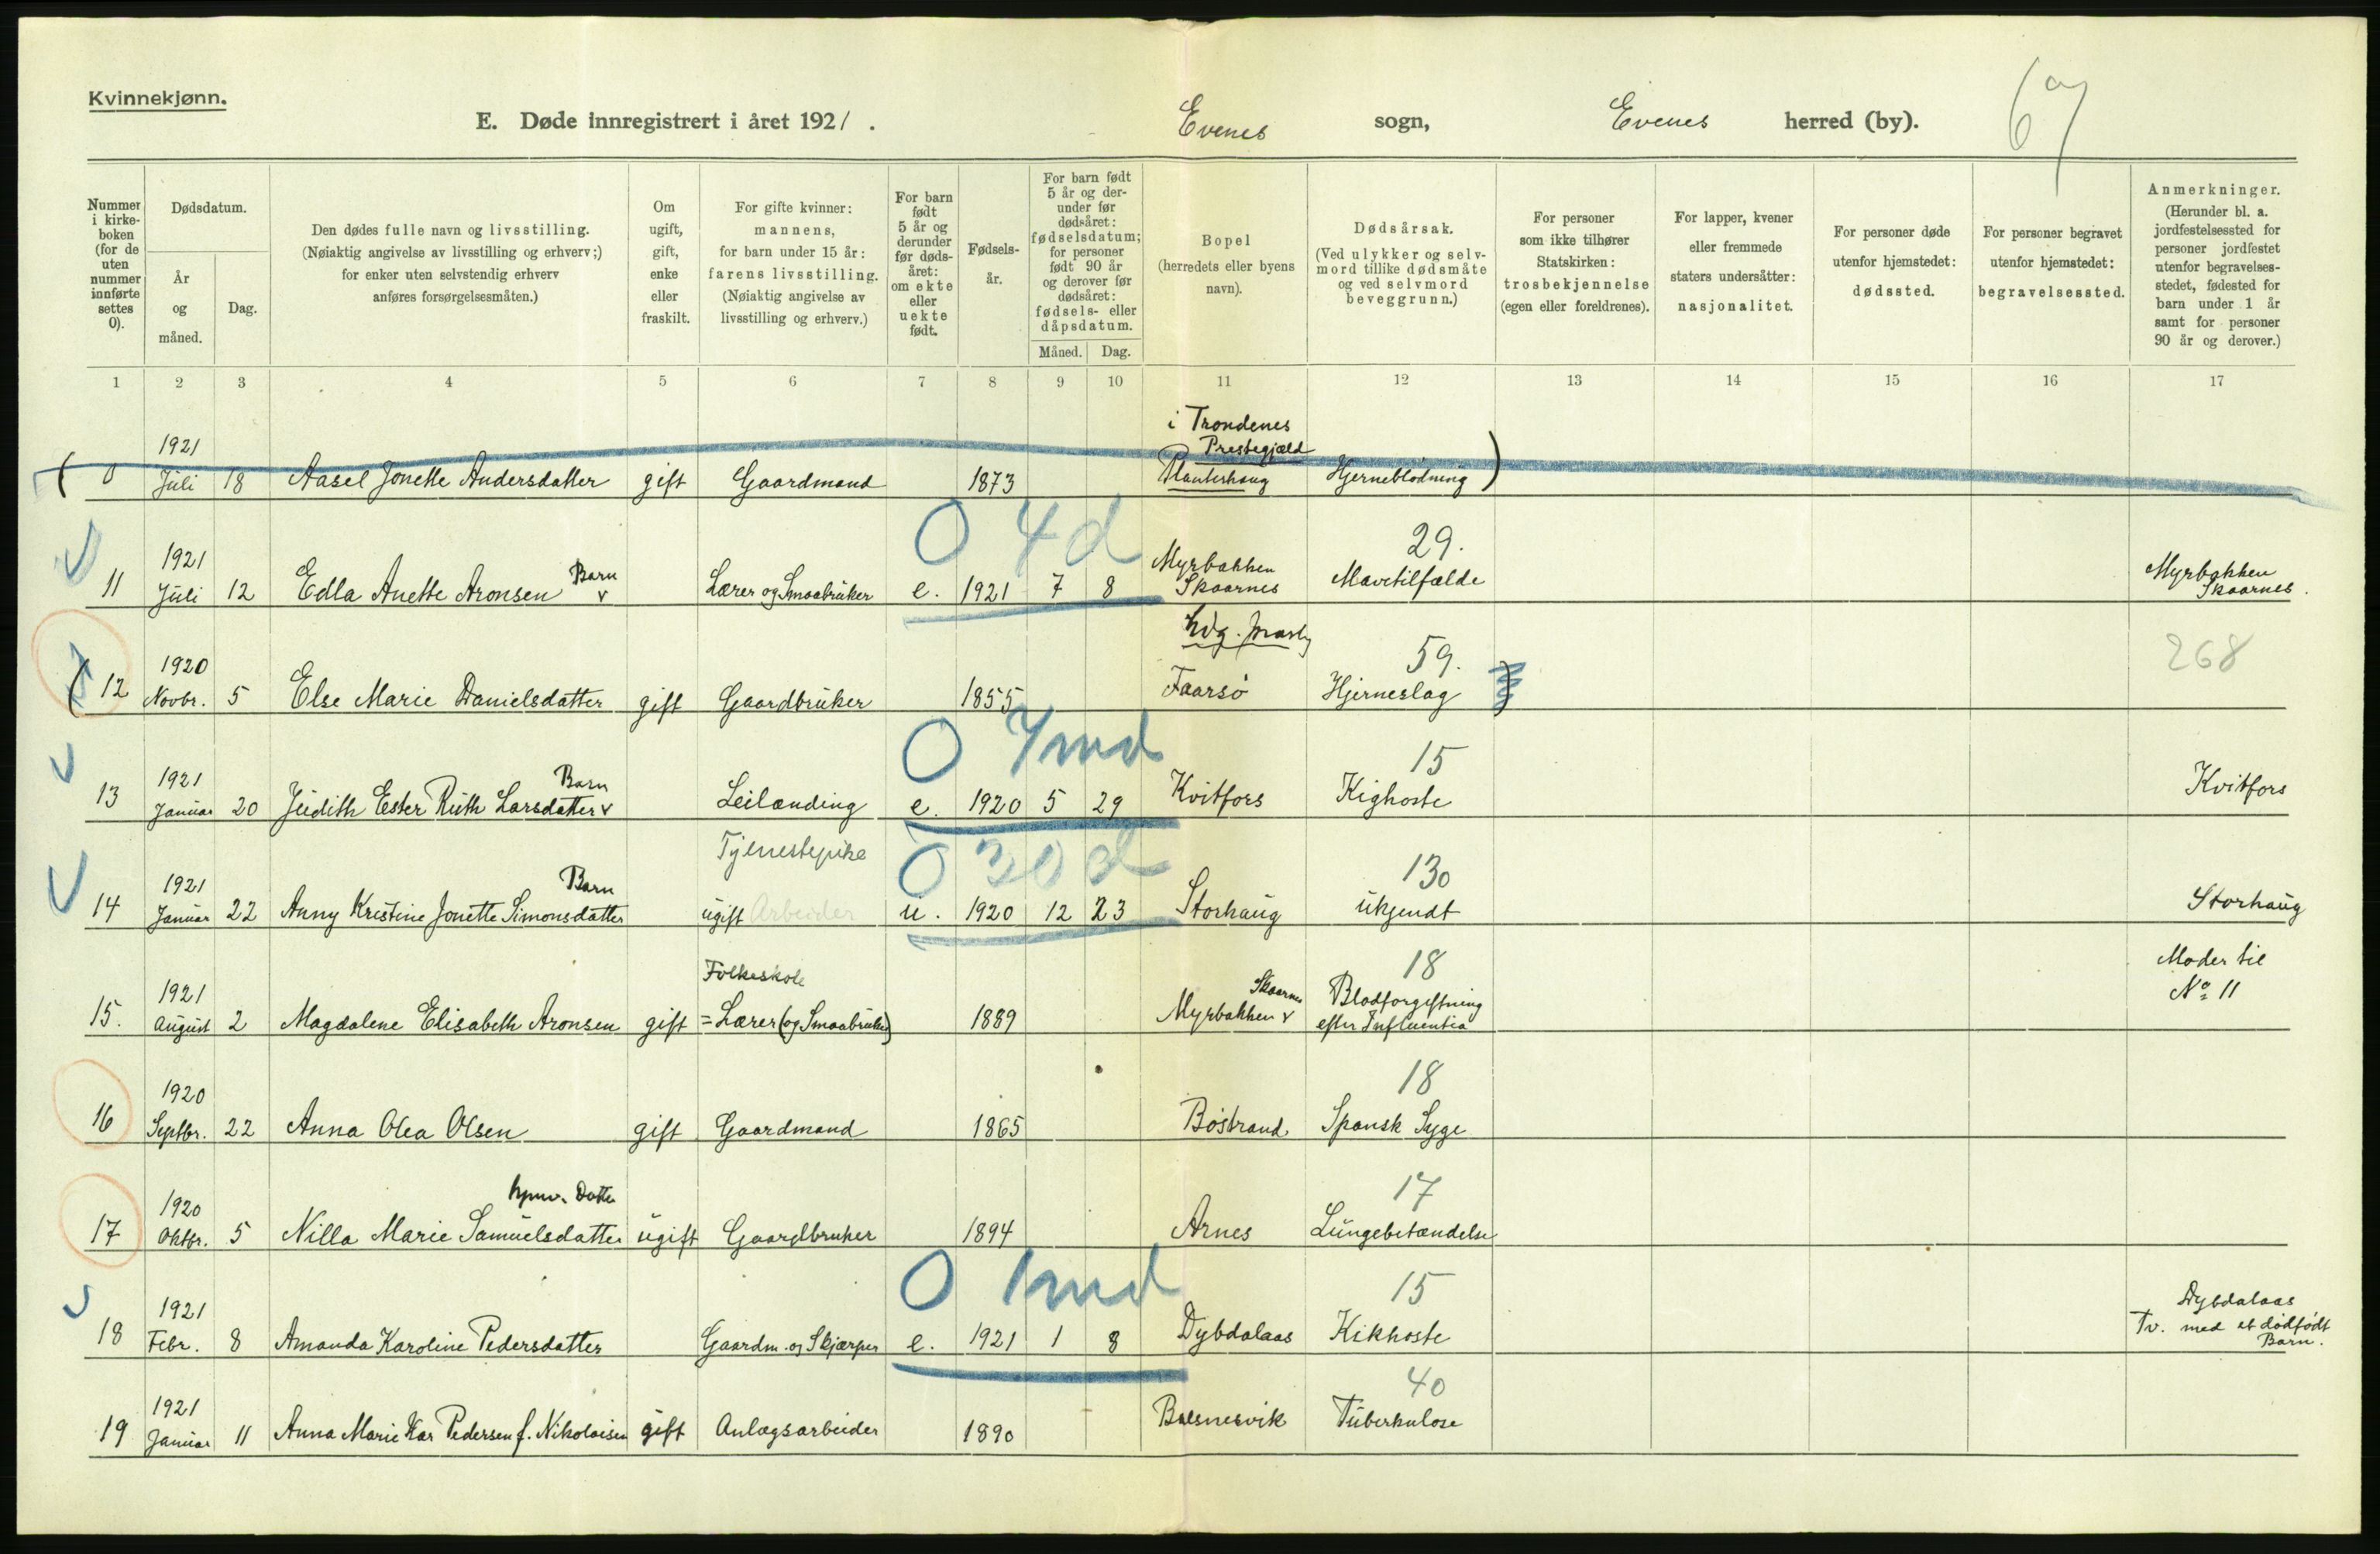 Kvinnekjønn.
E. Døde innregistrert i året 1921.
Evenes sogn,
Evenes herred (by).
67
Nummer i kirke- boken (for de uten nummer innførte settes 0).
Dødsdatum.
År og måned.
Dag.
Den dødes fulle navn og livsstilling.
(Nøiaktig angivelse av livsstilling og erhverv;)
for enker uten selvstendig erhverv
anføres forsørgelsesmåten.)
Om ugift, gift, enke eller fraskilt.
For gifte kvinner:
mannens,
for barn under 15 år:
farens livsstilling.
(Nøiaktig angivelse av
livsstilling og erhverv.)
For barn født 5 år og derunder før døds- året: om ekte eller uekte født.
Fødsels- år.
For barn født 5 år og der- under før dødsåret: fødselsdatum; for personer født 90 år og derover før dødsåret: fødsels- eller dåpsdatum.
Måned. Dag.
Bopel
(herredets eller byens
navn).
Dødsårsak.
(Ved ulykker og selv-
mord tillike dødsmåte
og ved selvmord
beveggrunn.)
For personer
som ikke tilhører
Statskirken:
trosbekjennelse
(egen eller foreldrenes).
For lapper, kvener
eller fremmede
staters undersåtter:
nasjonalitet.
For personer døde
utenfor hjemstedet:
dødssted.
For personer begravet
utenfor hjemstedet:
begravelsessted.
Anmerkninger.
(Herunder bl. a.
jordfestelsessted for
personer jordfestet
utenfor begravelses-
stedet, fødested for
barn under 1 år
samt for personer
90 år og derover.)
1 2 3 4 5 6 7 8 9 10 11 12 13 14 15 16 17
i Trondenes
1921 Prestegjæld
(0 Juli 18 Aasel Jonette Andersdatter gift Gaardmand 1873 Hjerneblödning)
0 4d
1921 Barn Myrbakken 29. Myrbakken
11 Juli 12 Edla Anette Aronsen v Lærer og Smaabruker e. 1921 7 8 Skaarnes Mavetilfælde Skaarnes.
1920 59. 268
(12 Novbr. 5 Else Marie Danielsdatter gift Gaardbruker 1855 Faarsö Hjerneslag)
0 7md
1921 Barn 15
13 Januar 20 Judith Ester Ruth Larsdatter v Leilænding e. 1920 5 29 Kvitfors Kighoste Kvitfors
Tjenestepike 0 30d
1921 Barn 130
14 Januar 22 Anny Kristine Jonette Simonsdatter ugift Arbeider u. 1920 12 23 Storhaug ukjendt Storhaug
Folkeskole 18 Moder til
1921 Skaarnes Blodforgiftning No 11
15. August 2 Magdalene Elisabeth Aronsen gift =Lærer (og Smaabruker) 1889 Myrbakken v efter Influentia
1920 18
16 Septbr. 22 Anna Olea Olsen gift Gaardmand 1865 Böstrand Spansk Syge
1920 Datter 17
17 Oktbr. 5 Nilla Marie Samuelsdatter ugift Gaardbruker 1894 Arnes Lungebetændelse
0 1md
1921 15 Dybdalaas
18 Febr. 8 Amanda Karoline Pedersdatter Gaardm. og Skjærper e. 1921 1 8 Dybdalaas Kikhoste Tv. med et dödfödt
Barn.
1921 40
19 Januar 11 Anna Marie Kar Pedersen f. Nikolaisen gift Anlægsarbeider 1890 Balsnesvik Tuberkulose